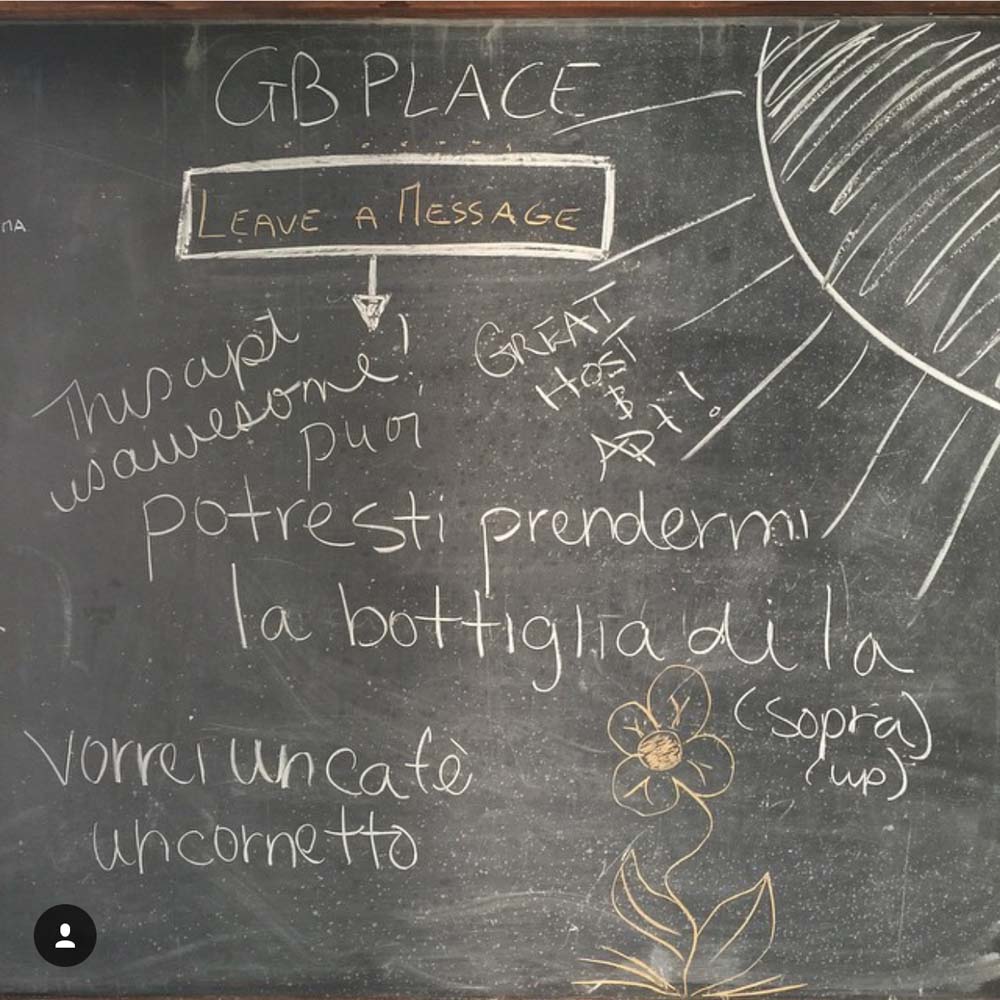 GB PLACE
LEAVE A MESSAGE
This apt
is awesome!
GREAT
HOST
&
APt!
puoi
potresti prendermi
la bottiglia di la
(sopra)
(up)
vorrei un cafè
un cornetto
MA